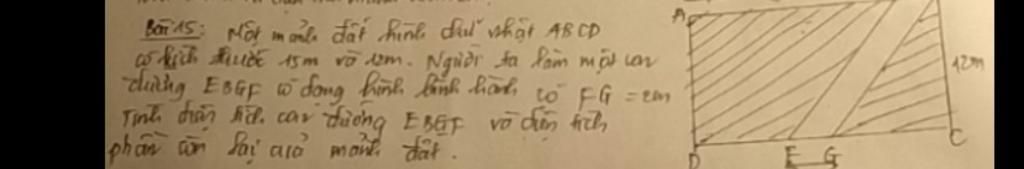 Bài 15: Một mảnh đất hình chữ nhật ABCD
có kích thước 15m và 12m. Người ta làm một con
đường EBGF có dạng hình bình hành có FG = 2m
Tính diện tích con đường EBGF và diện tích
phần còn lại của mảnh đất.
A
12m
D
E G
C